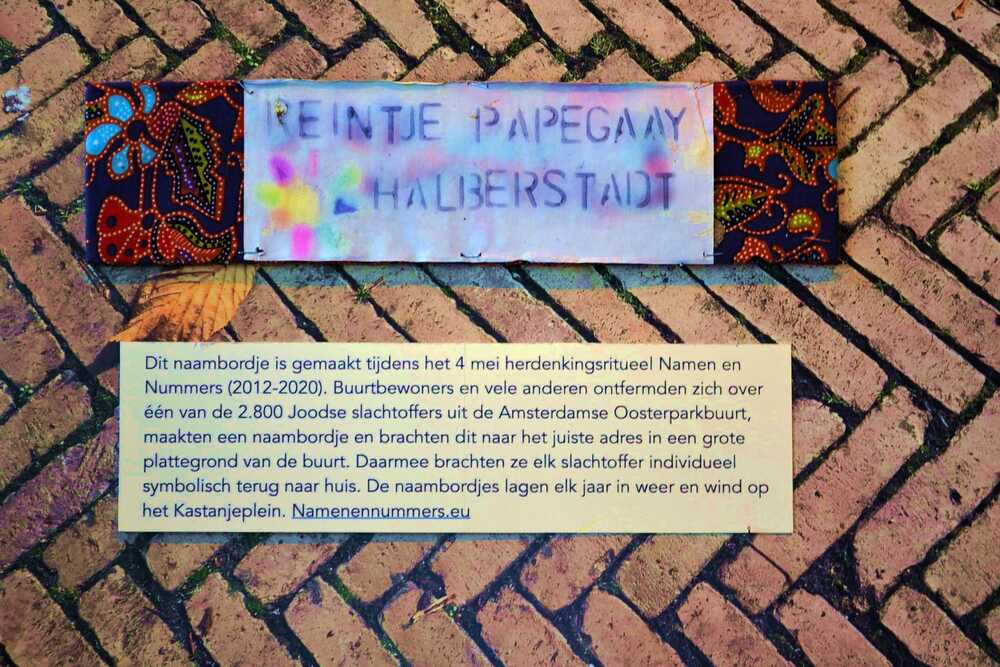 REINTJE PAPEGAAY
HALBERSTADT
Dit naambordje is gemaakt tijdens het 4 mei herdenkingsritueel Namen en
Nummers (2012-2020). Buurtbewoners en vele anderen ontfermden zich over
één van de 2.800 Joodse slachtoffers uit de Amsterdamse Oosterparkbuurt,
maakten een naambordje en brachten dit naar het juiste adres in een grote
plattegrond van de buurt. Daarmee brachten ze elk slachtoffer individueel
symbolisch terug naar huis. De naambordjes lagen elk jaar in weer en wind op
het Kastanjeplein. Namenennummers.eu